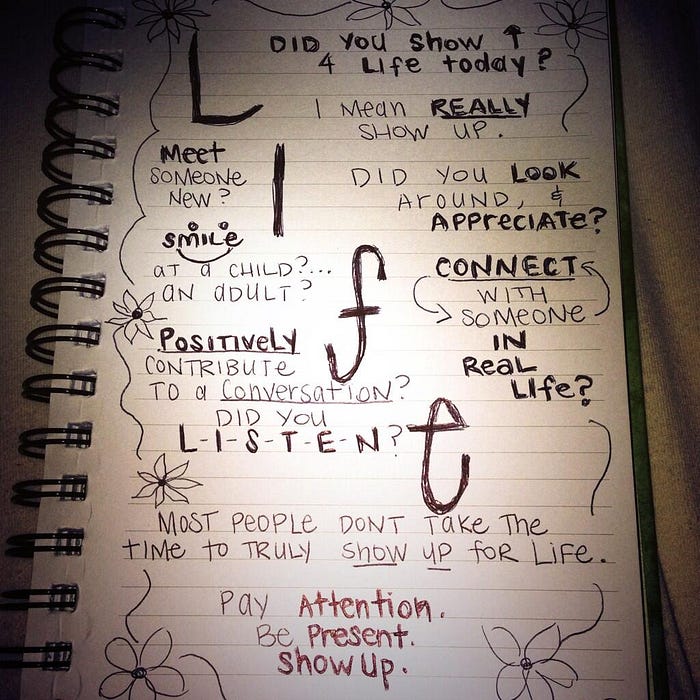 L
DID You Show ↑
4 LIfe today?
I Mean REALLY
SHOW UP.
Meet
SOMEONE
NEW?
I
DID YOU LOOK
AROUND, &
APPreciATE?
SMiLe
aT a CHILD?...
aN aDULT?
f
CONNECT
WITH
SOMEONE
IN
ReaL
LIfe?
POSITIVELY
CONTRIBUTE
TO a Conversation?
DID YOU
L-I-S-T-E-N?
e
MOST PEOPLE DONT Take The
TIME to TRULY show up for LiFe.
Pay Attention.
Be Present.
Show Up.